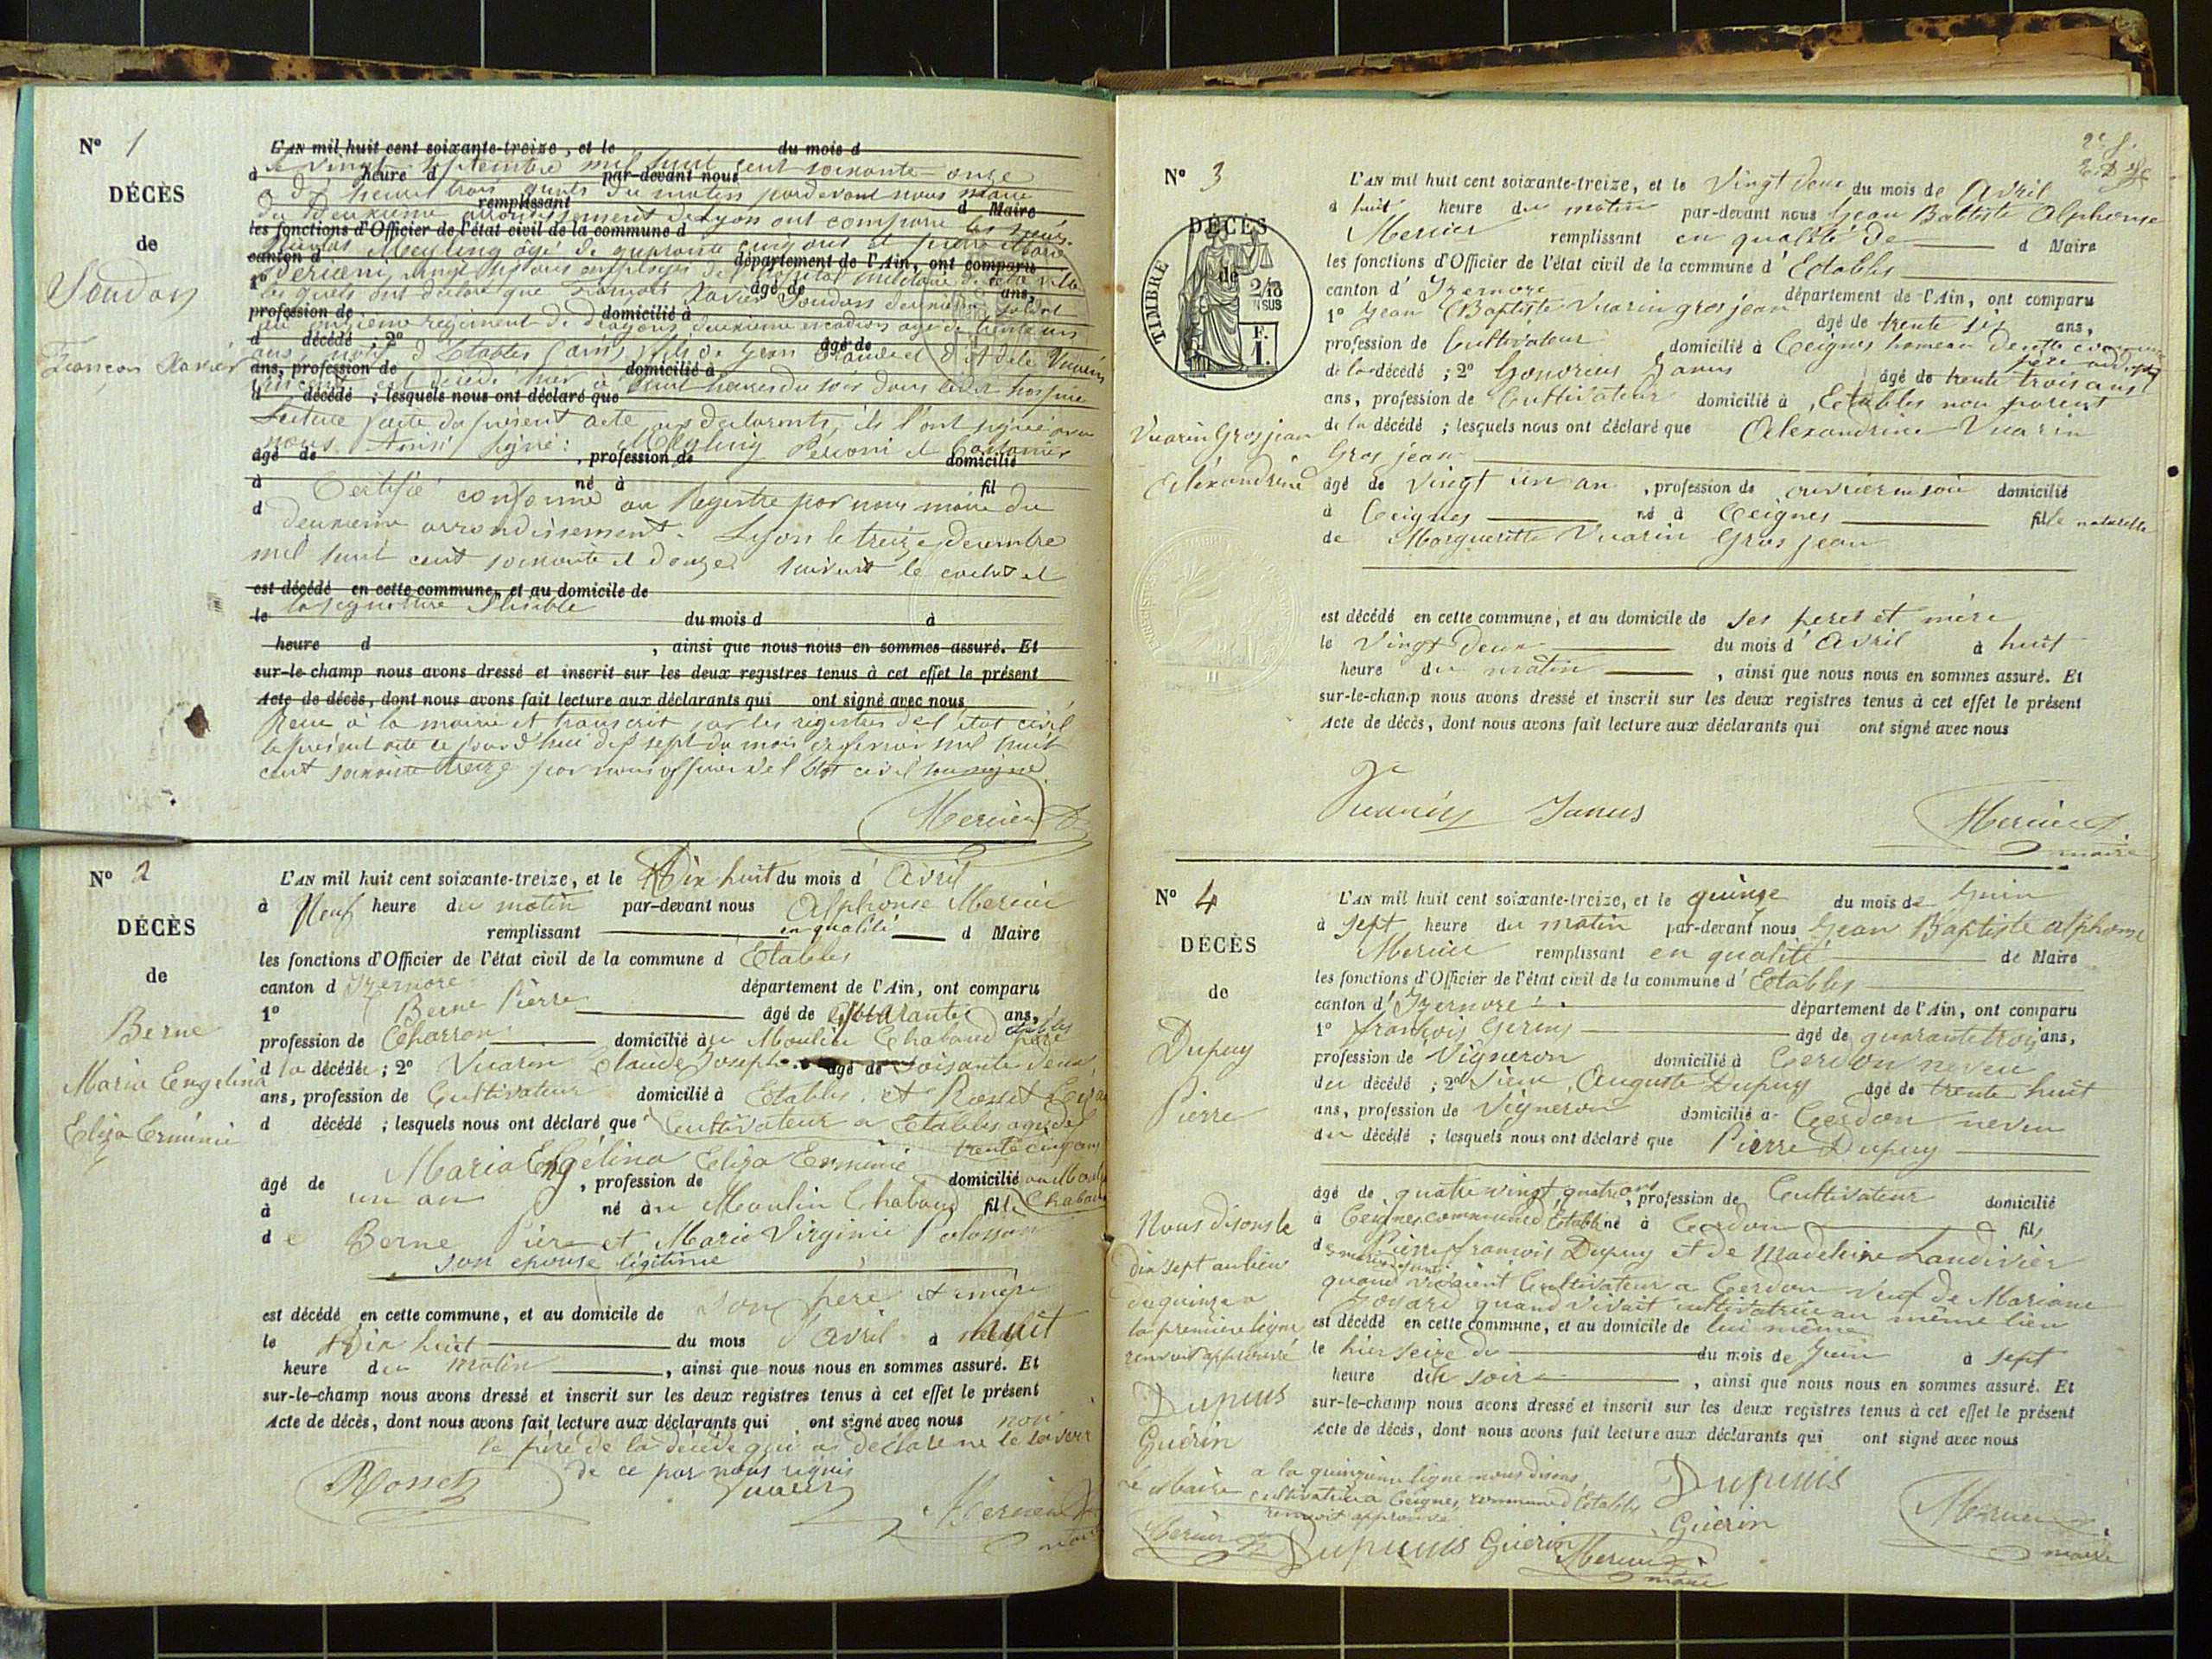 N° 1
DÉCÈS
de
Soudan
François Xavier
L'AN mil huit cent soixante-treize, et le du mois d
le vingt septembre mil huit cent soixante-onze
à heure d par-devant nous
à dix heures trois quarts du matin pardevant nous maire
remplissant d Maire
du deuxième arrondissement de Lyon ont comparu les sieurs
les fonctions d'Officier de l'état civil de la commune d
Nicolas Meyling âgé de quarante cinq ans et Pierre Marie
canton d département de l'Ain, ont comparu
vingt six ans employés de l'hôpital militaire de cette ville
1° âgé de ans,
les quels ont déclaré que François Xavier Soudan deuxième soldat
profession de domicilié à
au onzième régiment de dragons deuxième escadron âgé de trente un
d décédé ; 2° âgé de
ans, natif d'Etables (ain) fils de Jean Claude et d'Adèle Vuarin
ans, profession de domicilié à
est décédé hier à huit heures du soir dans ledit hospice
d décédé ; lesquels nous ont déclaré que
Lecture faite du présent acte aux déclarants, ils l'ont signé avec
nous. Ainsi signé : Meyling
âgé de , profession de domicilié
à né à fil
Certifié conforme au Registre par nous maire du
d
deuxième arrondissement. Lyon le treize décembre
mil huit cent soixante et douze. suivent le cachet et
est décédé en cette commune, et au domicile de
la signature illisible
le du mois d à
heure d , ainsi que nous nous en sommes assuré. Et
sur-le-champ nous avons dressé et inscrit sur les deux registres tenus à cet effet le présent
Acte de décès, dont nous avons fait lecture aux déclarants qui ont signé avec nous
Reçu à la mairie et transcrit sur les registres de l'état civil
le présent acte ce jourd'hui dix sept du mois de février mil huit
cent soixante treize par nous officier de l'état civil soussigné
Mercier
N° 2
DÉCÈS
de
Berne
Maria Engelina
Eliza Erminie
L'AN mil huit cent soixante-treize, et le Dix huit du mois d' Avril
à Neuf heure du matin par-devant nous Alphonse Mercier
remplissant en qualité d Maire
les fonctions d'Officier de l'état civil de la commune d Etables
canton d Izernore département de l'Ain, ont comparu
1° Berne Pierre âgé de quarante ans,
profession de Charron domicilié au Moulin Chabaud Etables père
d la décédée ; 2° Vuarin Claude Joseph âgé de soisante deux
ans, profession de Cultivateur domicilié à Etables et Rosset
d décédé ; lesquels nous ont déclaré que Cultivateur a Etables agé de
trente cinq ans
Maria Engélina Eliza Erminie
âgé de un an , profession de domicilié au Moulin
à né au Moulin Chabaud fille Chabaud
de Berne Pierre et Marie Virginie
son épouse légitime
est décédé en cette commune, et au domicile de son père et mère
le Dix huit du mois d'avril à huit
heure du matin , ainsi que nous nous en sommes assuré. Et
sur-le-champ nous avons dressé et inscrit sur les deux registres tenus à cet effet le présent
Acte de décès, dont nous avons fait lecture aux déclarants qui ont signé avec nous non
le père de la décédé qui a déclaré ne le savoir
de ce par nous requis
Rosset Vuarin Mercier
maire
2e f.
N° 3
DÉCÈS
de
TIMBRE
2/10
EN SUS
F.
1.
Vuarin Grosjean
Alexandrine
L'AN mil huit cent soixante-treize, et le Vingt deux du mois de Avril
à huit heure du matin par-devant nous Jean Battiste Alphonse
Mercier remplissant en qualité de d Maire
les fonctions d'Officier de l'état civil de la commune d' Etables
canton d' Izernore département de l'Ain, ont comparu
1° Jean Baptiste Vuarin gros jean âgé de trente six ans,
profession de Cultivateur domicilié à Ceignes hameau de cette commune
père
de la décédé ; 2° Honorius Janus âgé de trente trois ans
ans, profession de Cultivateur domicilié à Etables non parent
de la décédé ; lesquels nous ont déclaré que Alexandrine Vuarin
Gros jean
âgé de vingt un an , profession de ouvrière en soie domicilié
à Ceignes né à Ceignes fille naturelle
de Marguerite Vuarin Gros jean
est décédé en cette commune, et au domicile de ses peres et mère
le Vingt Deux du mois d' Avril à huit
heure du matin , ainsi que nous nous en sommes assuré. Et
sur-le-champ nous avons dressé et inscrit sur les deux registres tenus à cet effet le présent
Acte de décès, dont nous avons fait lecture aux déclarants qui ont signé avec nous
Vuarin Janus Mercier
maire
N° 4
DÉCÈS
de
Dupuy
Pierre
L'AN mil huit cent soixante-treize, et le quinze du mois de Juin
à sept heure du matin par-devant nous Jean Baptiste alphonse
Mercier remplissant en qualité de Maire
les fonctions d'Officier de l'état civil de la commune d' Etables
canton d' Izernore département de l'Ain, ont comparu
1° françois Gerin âgé de quarante trois ans,
profession de Vigneron domicilié à Cerdon neveu
du décédé ; 2° sieur Auguste Dupuy âgé de trente huit
ans, profession de Vigneron domicilié à Cerdon neveu
du décédé ; lesquels nous ont déclaré que Pierre Dupuy
âgé de quatre vingt quatre ans, profession de Cultivateur domicilié
à Ceignes commune d'Etables né à Cerdon fils
de Pierre françois Dupuy et de Madeleine Landivier
quand vivaient Cultivateur a Cerdon veuf de Mariane
quand vivait cultivatrice au même lieu
est décédé en cette commune, et au domicile de lui même
le hier seize du du mois de Juin à sept
heure du soir , ainsi que nous nous en sommes assuré. Et
sur-le-champ nous avons dressé et inscrit sur les deux registres tenus à cet effet le présent
Acte de décès, dont nous avons fait lecture aux déclarants qui ont signé avec nous
Nous disons le
dix sept au lieu
du quinze a
la première ligne
renvoi approuvé
Dupuis
Guérin
Le Maire
Mercier
a la quinzième ligne nous disons
cultivatrice a Ceignes, commune d'Etables
renvoi approuvé
Dupuis Guérin Mercier
maire
Dupuis
Guérin
Mercier
maire